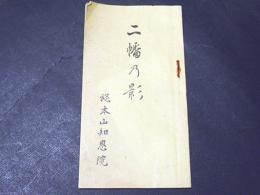 二幡乃影
総本山知恩院